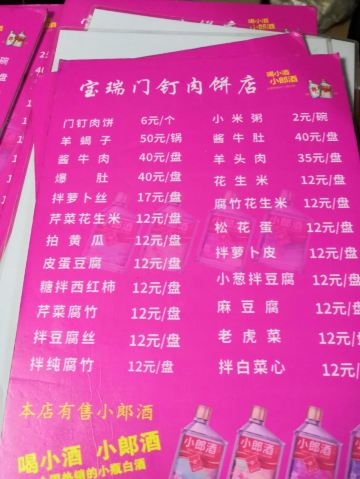 宝瑞门钉肉饼店 喝小酒 小郎酒
门钉肉饼 6元/个 小米粥 2元/碗
羊蝎子 50元/锅 酱牛肚 40元/盘
酱牛肉 40元/盘 羊头肉 35元/盘
爆肚 40元/盘 花生米 12元/盘
拌萝卜丝 17元/盘 腐竹花生米 12元/盘
芹菜花生米 12元/盘 松花蛋 12元/盘
拍黄瓜 12元/盘 拌萝卜皮 12元/盘
皮蛋豆腐 12元/盘 小葱拌豆腐 12元/盘
糖拌西红柿 12元/盘 麻豆腐 12元/盘
芹菜腐竹 12元/盘 老虎菜 12元/盘
拌豆腐丝 12元/盘 拌白菜心 12元/
拌纯腐竹 12元/盘
本店有售小郎酒
喝小酒 小郎酒
热销的小瓶白酒
小郎酒 小郎酒 小郎酒